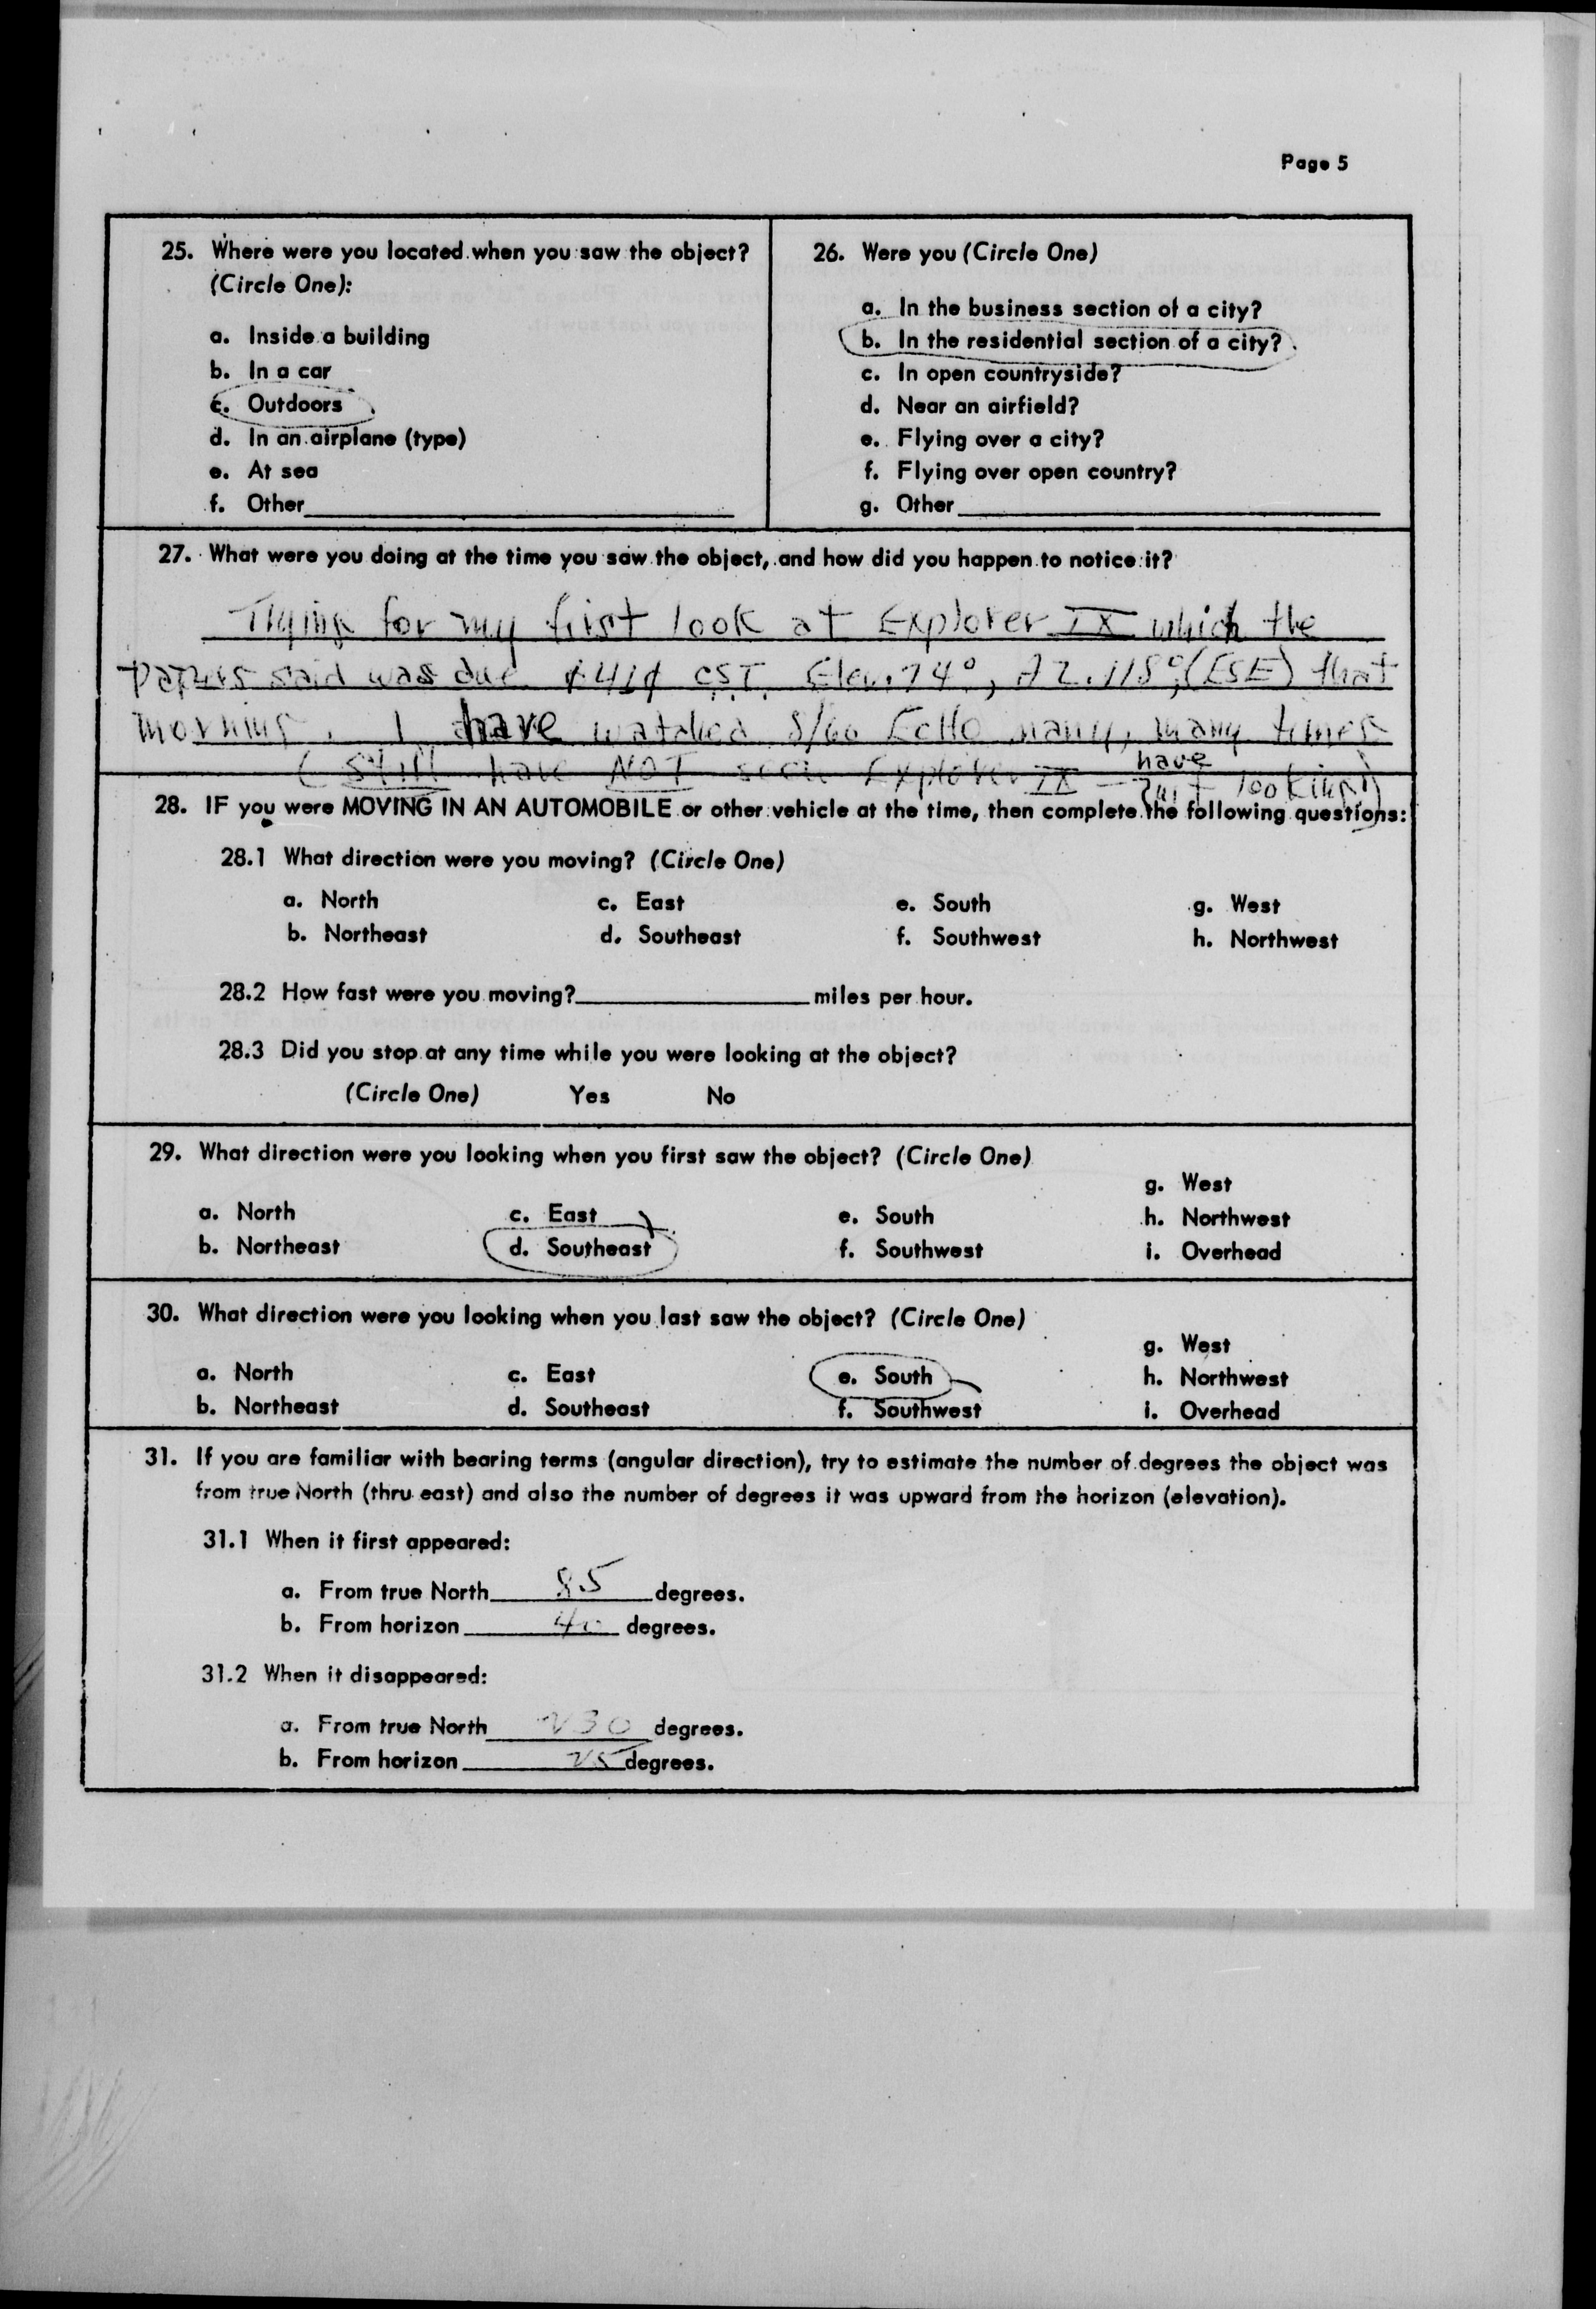 Page 5
25. Where were you located when you saw the object?
(Circle One):
a. Inside a building
b. In a car
c. Outdoors
d. In an airplane (type)
e. At sea
f. Other
26. Were you (Circle One)
a. In the business section of a city?
b. In the residential section of a city?
c. In open countryside?
d. Near an airfield?
e. Flying over a city?
f. Flying over open country?
g. Other
27. What were you doing at the time you saw the object, and how did you happen to notice it?
Trying for my first look at Explorer IX which the
papers said was due CST. Elev. 74°, AZ. 118° (ESE) that
morning. I have watched 8/60 Echo many, many times
(Still have NOT seen Explorer IX - have looking)
28. IF you were MOVING IN AN AUTOMOBILE or other vehicle at the time, then complete the following questions:
28.1 What direction were you moving? (Circle One)
a. North c. East e. South g. West
b. Northeast d. Southeast f. Southwest h. Northwest
28.2 How fast were you moving? miles per hour.
28.3 Did you stop at any time while you were looking at the object?
(Circle One) Yes No
29. What direction were you looking when you first saw the object? (Circle One)
g. West
a. North c. East e. South h. Northwest
b. Northeast d. Southeast f. Southwest i. Overhead
30. What direction were you looking when you last saw the object? (Circle One)
g. West
a. North c. East e. South h. Northwest
b. Northeast d. Southeast f. Southwest i. Overhead
31. If you are familiar with bearing terms (angular direction), try to estimate the number of degrees the object was
from true North (thru east) and also the number of degrees it was upward from the horizon (elevation).
31.1 When it first appeared:
a. From true North 85 degrees.
b. From horizon 40 degrees.
31.2 When it disappeared:
a. From true North 230 degrees.
b. From horizon 25 degrees.